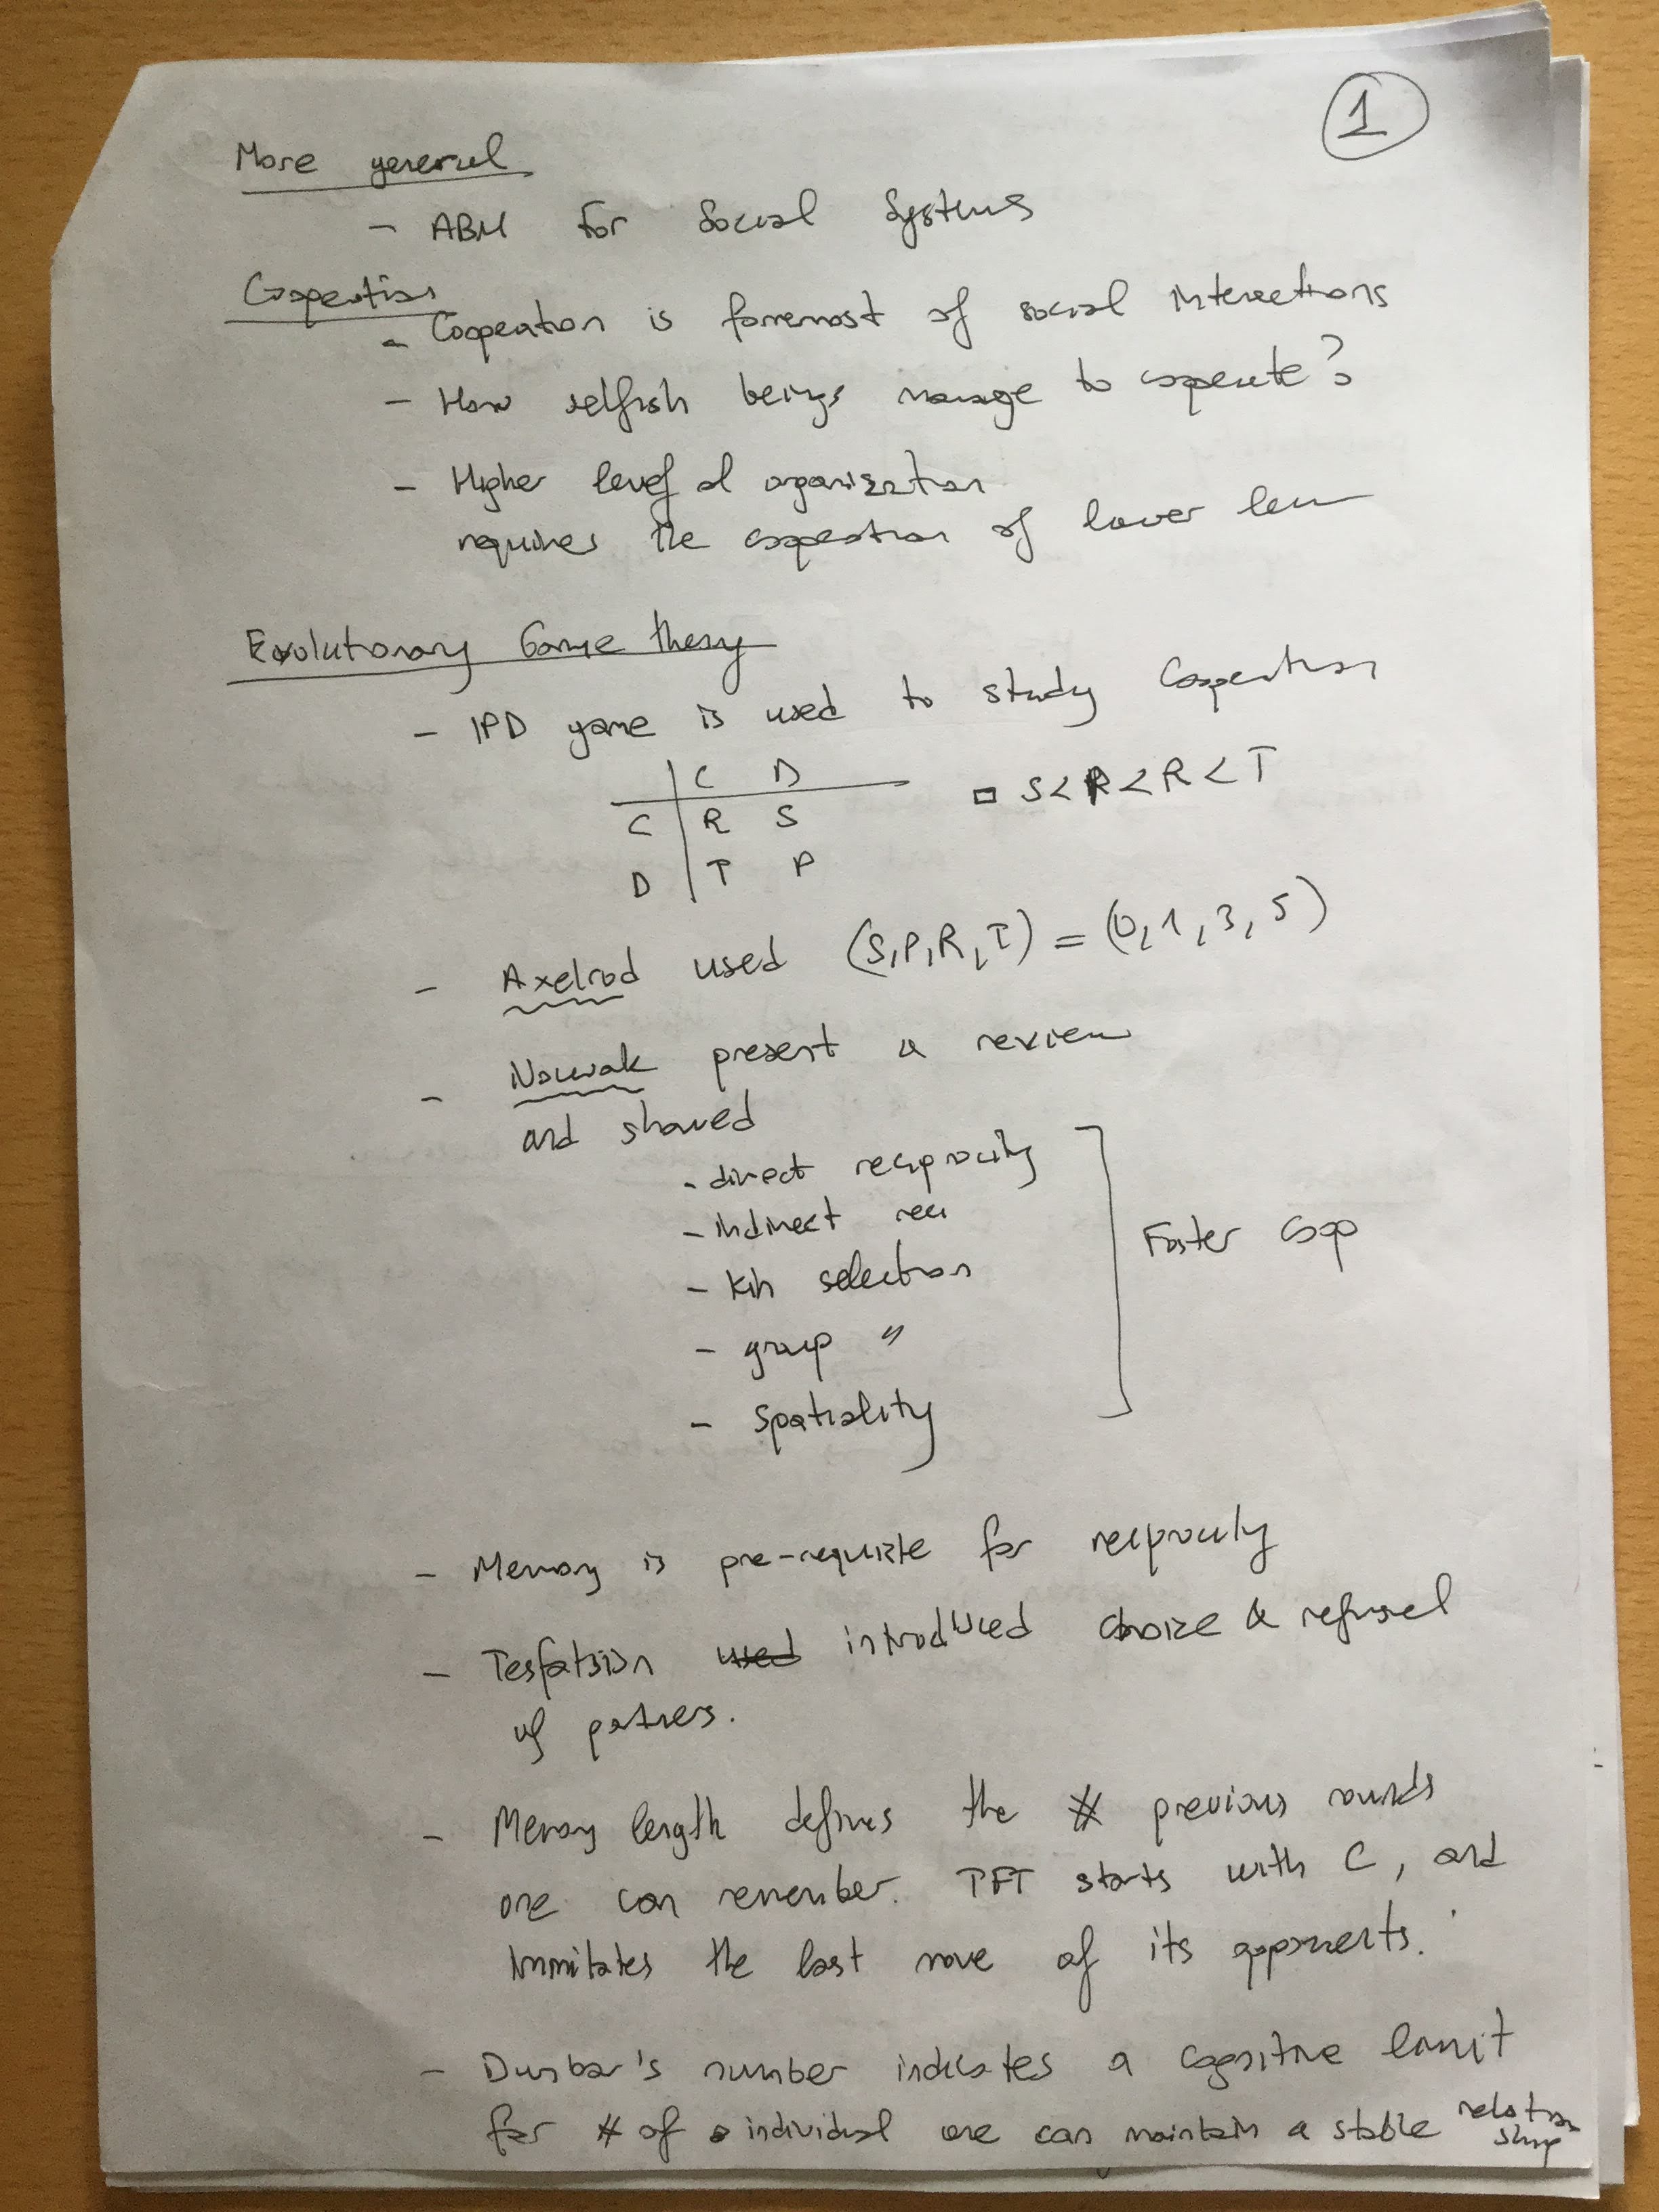 1
More general
- ABM for Social Systems
Cooperation
- Coopeation is forremost of social interactions
- How selfish beings manage to cooperate?
- Higher level of organization
requires the cooperation of lower
Evolutionary Game theory
- IPD game is used to study Cooperation
C D
C R S
D T P
S<P<R<T
- Axelrod used (S,P,R,T) = (0,1,3,5)
- Nowak present a review
and showed
- direct reciprocity
- indirect reci
- kin selection
- group "
- spatiality
Foster coop
- Memory is pre-requisite for reciprocity
- Tesfatsion used introduced choice & refusal
of partners.
- Memory length defines the # previous rounds
one can remember. TFT starts with C, and
immitates the last move of its opponents.
- Dunbar's number indicates a cognitive limit
for # of individual one can maintain a stable relation
ship